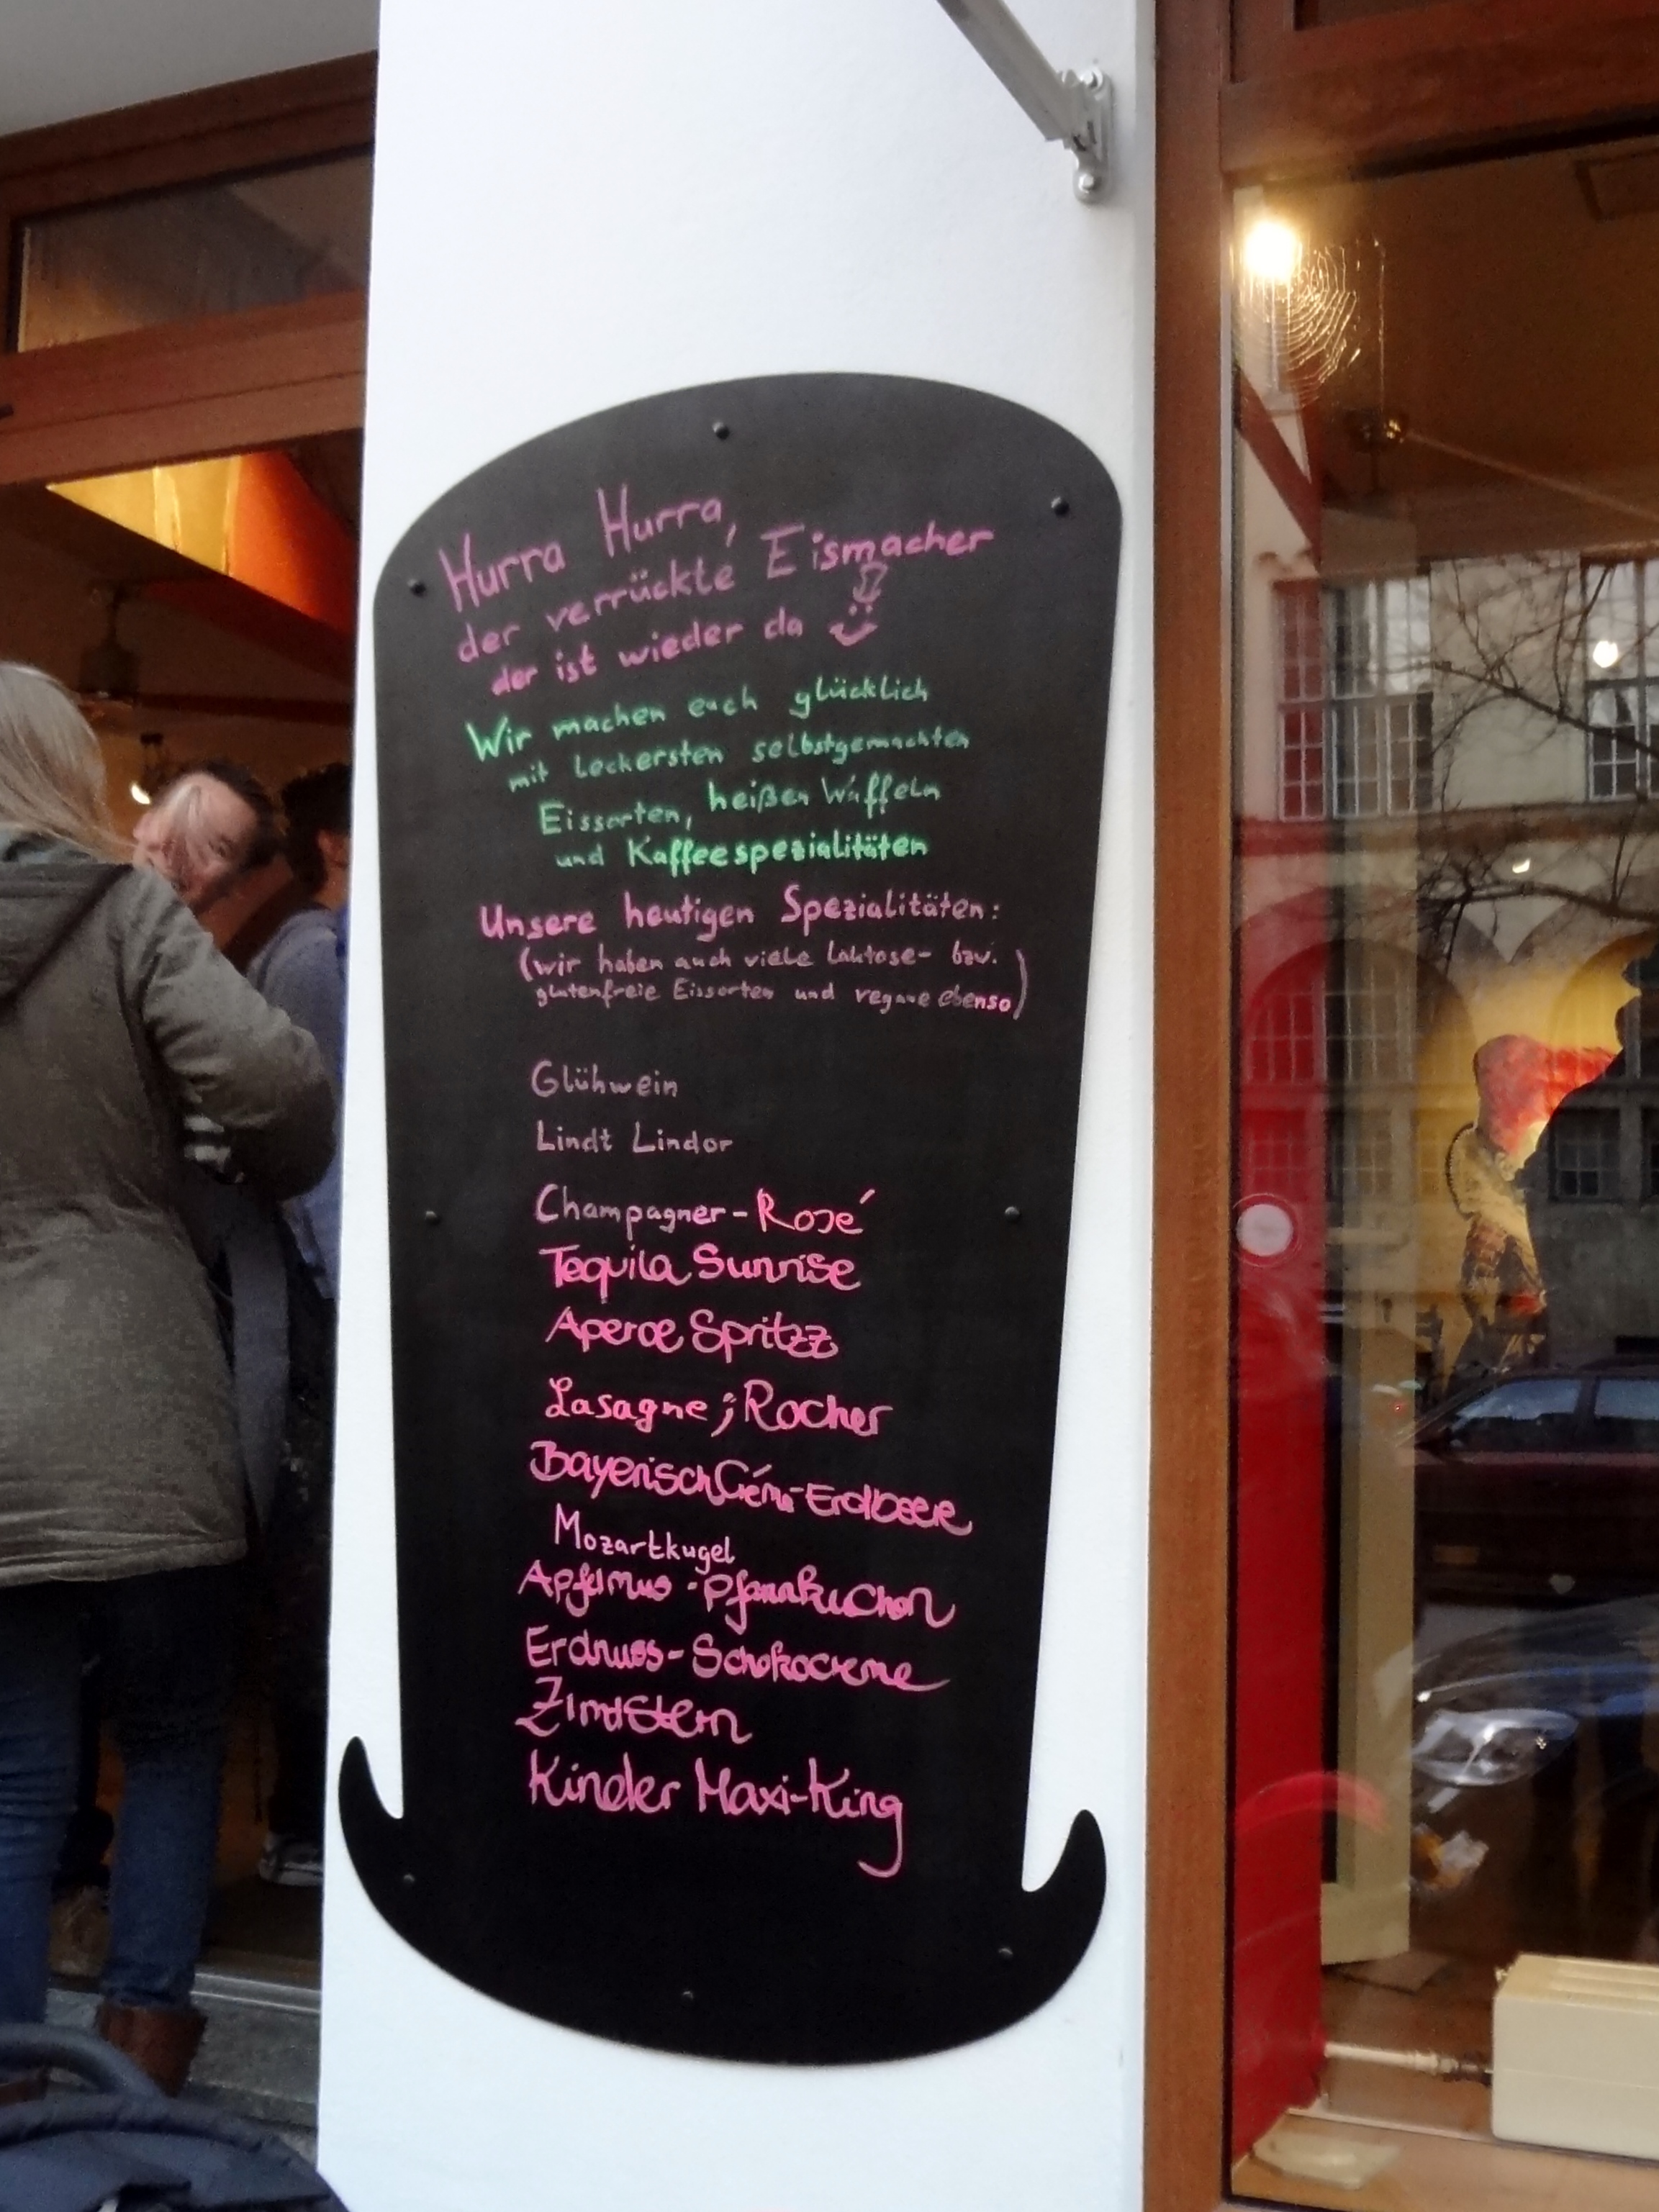 Hurra Hurra,
der verrückte Eismacher
der ist wieder da
Wir machen euch glücklich
mit leckersten selbstgemachten
Eissorten, heißen Waffeln
und Kaffeespezialitäten
Unsere heutigen Spezialitäten:
(wir haben auch viele laktose- bzw.
glutenfreie Eissorten und vegane ebenso)
Glühwein
Lindt Lindor
Champagner-Rosé
Tequila Sunrise
Aperoe Spritzz
Lasagne ; Rocher
Bayerisch Créme-Erdbeere
Mozartkugel
Apfelmus-Pfannkuchen
Erdnuss-Schokocreme
Zimtstern
Kinder Maxi-King